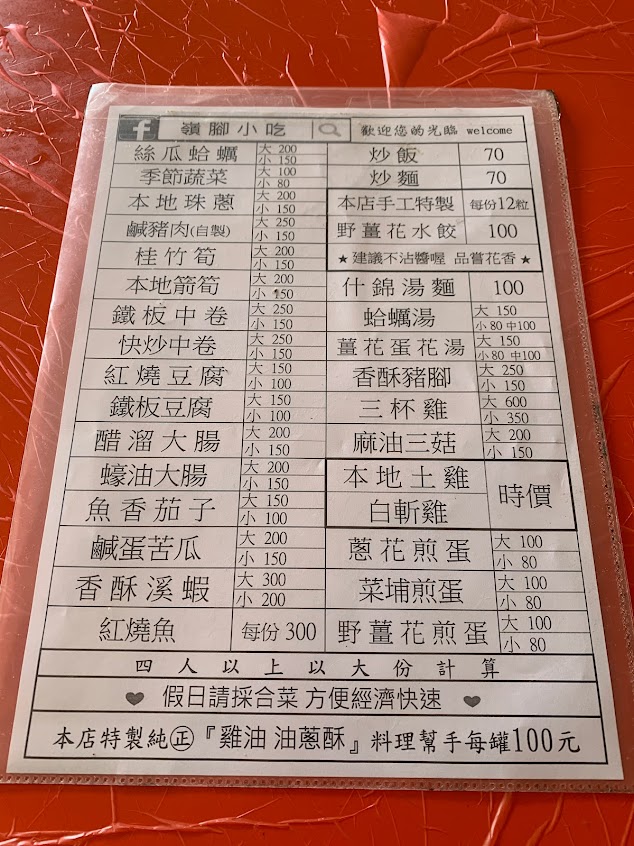 f 嶺腳小吃 歡迎您的光臨 welcome
絲瓜蛤蠣 大 200 小 150
季節蔬菜 大 100 小 80
本地珠蔥 大 200 小 150
鹹豬肉(自製) 大 250 小 150
桂竹筍 大 200 小 150
本地箭筍 大 200 小 150
鐵板中卷 大 250 小 150
快炒中卷 大 250 小 150
紅燒豆腐 大 150 小 100
鐵板豆腐 大 150 小 100
醋溜大腸 大 200 小 150
蠔油大腸 大 200 小 150
魚香茄子 大 150 小 100
鹹蛋苦瓜 大 200 小 150
香酥溪蝦 大 300 小 200
紅燒魚 每份 300
炒飯 70
炒麵 70
本店手工特製 每份12粒
野薑花水餃 100
★建議不沾醬喔 品嘗花香★
什錦湯麵 100
蛤蠣湯 大 150 小 80 中100
薑花蛋花湯 大 150 小 80 中100
香酥豬腳 大 250 小 150
三杯雞 大 600 小 350
麻油三菇 大 200 小 150
本地土雞 時價
白斬雞
蔥花煎蛋 大 100 小 80
菜埔煎蛋 大 100 小 80
野薑花煎蛋 大 100 小 80
四人以上以大份計算
♥ 假日請採合菜 方便經濟快速 ♥
本店特製純㊣『雞油 油蔥酥』料理幫手每罐100元